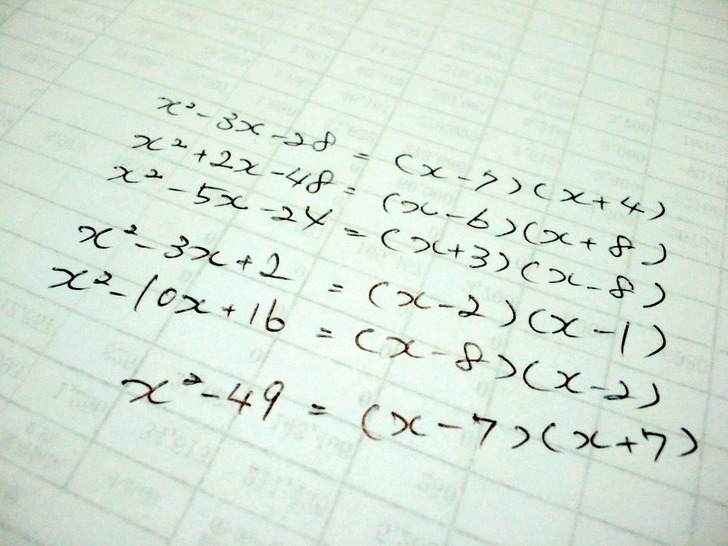 x² - 3x - 28 = (x - 7)(x + 4)
x² + 2x - 48 = (x - 6)(x + 8)
x² - 5x - 24 = (x + 3)(x - 8)
x² - 3x + 2 = (x - 2)(x - 1)
x² - 10x + 16 = (x - 8)(x - 2)
x² - 49 = (x - 7)(x + 7)